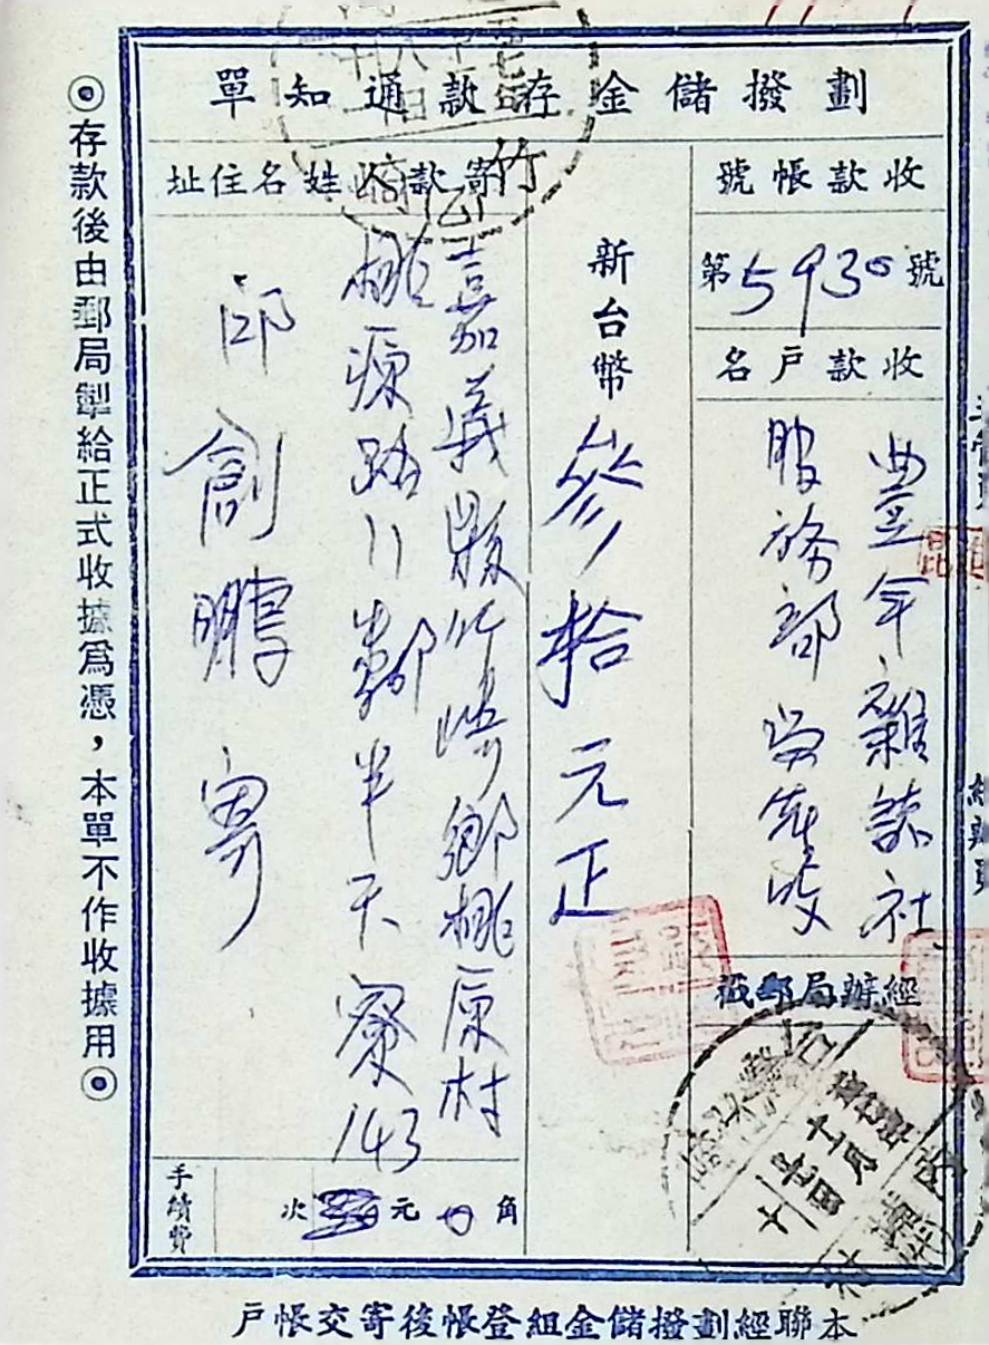 劃撥儲金存款通知單
收款帳號
第5930號
收款戶名
豐年雜誌社
服務部
新台幣
參拾元正
寄款人姓名住址
嘉義縣竹崎鄉桃原村
桃源路11鄰半天寮143
邱創鵬寄
手續費
次
元
角
經辦局郵戳
◉存款後由郵局掣給正式收據為憑，本單不作收據用◉
本聯經劃撥儲金組登帳後寄交帳戶